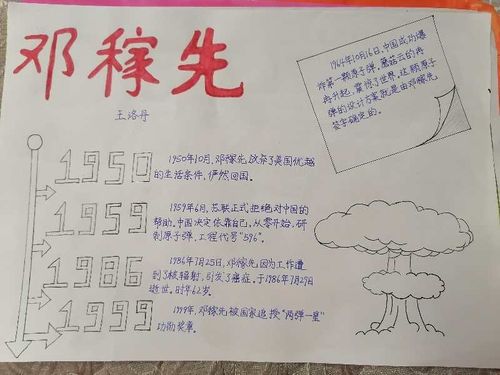 邓稼先
王洛丹
1964年10月16日,中国成功爆
炸第一颗原子弹,蘑菇云的冉
冉升起,震惊了世界,这颗原子
弹的设计方案就是由邓稼先
签字确定的。
1950
1950年10月,邓稼先放弃了美国优越
的生活条件,俨然回国。
1959
1959年6月,苏联正式拒绝对中国的
帮助。中国决定依靠自己,从零开始,研
制原子弹,工程代号"596"。
1986
1986年7月25日,邓稼先因为工作遭
到了核辐射,引发了癌症,于1986年7月29日
逝世,时年62岁。
1999
1999年,邓稼先被国家追授"两弹一星"
功勋奖章。